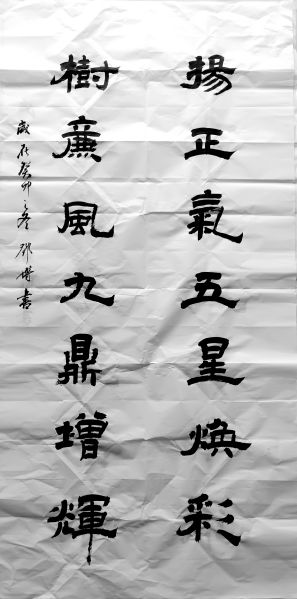 揚正氣五星煥彩
樹廉風九鼎增輝
歲在癸卯之冬 鄧博書